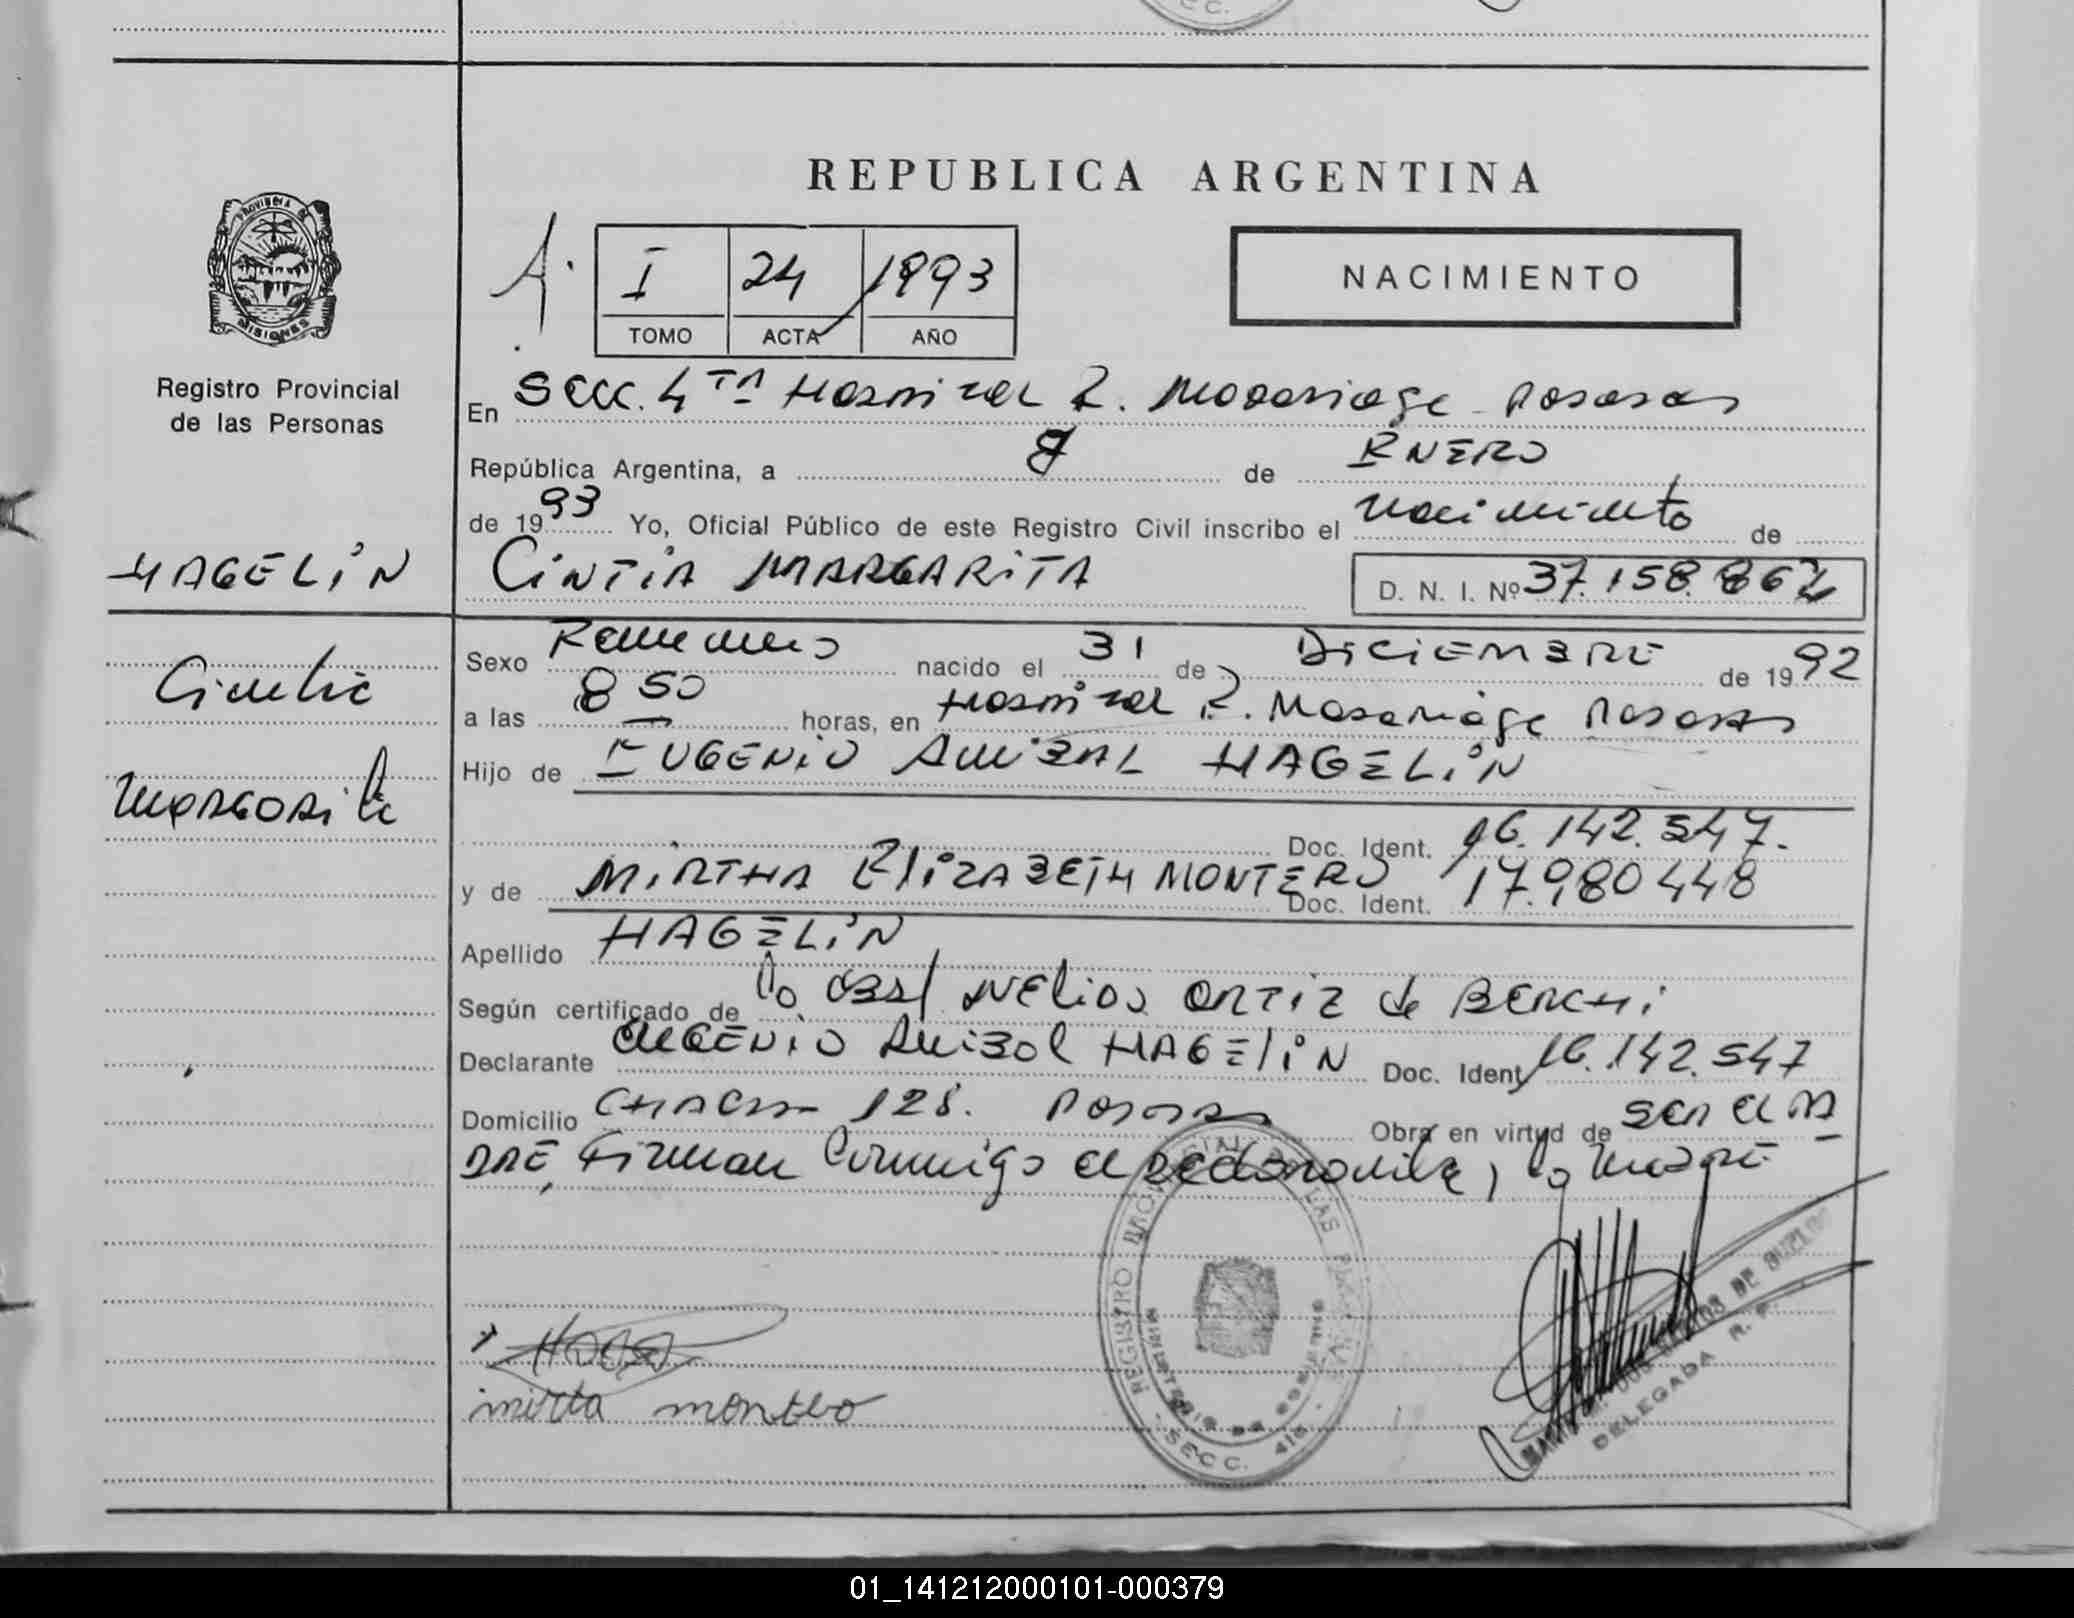 REPUBLICA ARGENTINA
PROVINCIA DE
MISIONES
A.
I 24 1993
TOMO ACTA AÑO
NACIMIENTO
Registro Provincial
de las Personas
En Secc. 4 TA Hospital R. Madariaga - Posadas
República Argentina, a de ENERO
de 1993 Yo, Oficial Público de este Registro Civil inscribo el nacimiento de
HAGELIN
CINTIA MARGARITA D. N. I. Nº 37.158.862
Cintia
Margarita
Sexo Femenino nacido el 31 de DICIEMBRE de 1992
a las 8 50 horas, en Hospital R. Madariaga Posadas
Hijo de EUGENIO ANIBAL HAGELIN
Doc. Ident. 16.142.547.
y de MIRTHA ELIZABETH MONTERO Doc. Ident. 17.980448
Apellido HAGELIN
Según certificado de la obst NELIDA ORTIZ de BERCHI
Declarante EUGENIO ANIBAL HAGELIN Doc. Ident. 16.142.547
Domicilio CHACO 128. Posadas Obra en virtud de ser el PA
DRE, Firman Conmigo el declarante, la madre -
REGISTRO PROVINCIAL DE LAS PERSONAS
MINISTERIO DE GOBIERNO
SECC. 4ta.
mirta montero
DOS SANTOS DE
DELEGADA R. P.
01_141212000101-000379